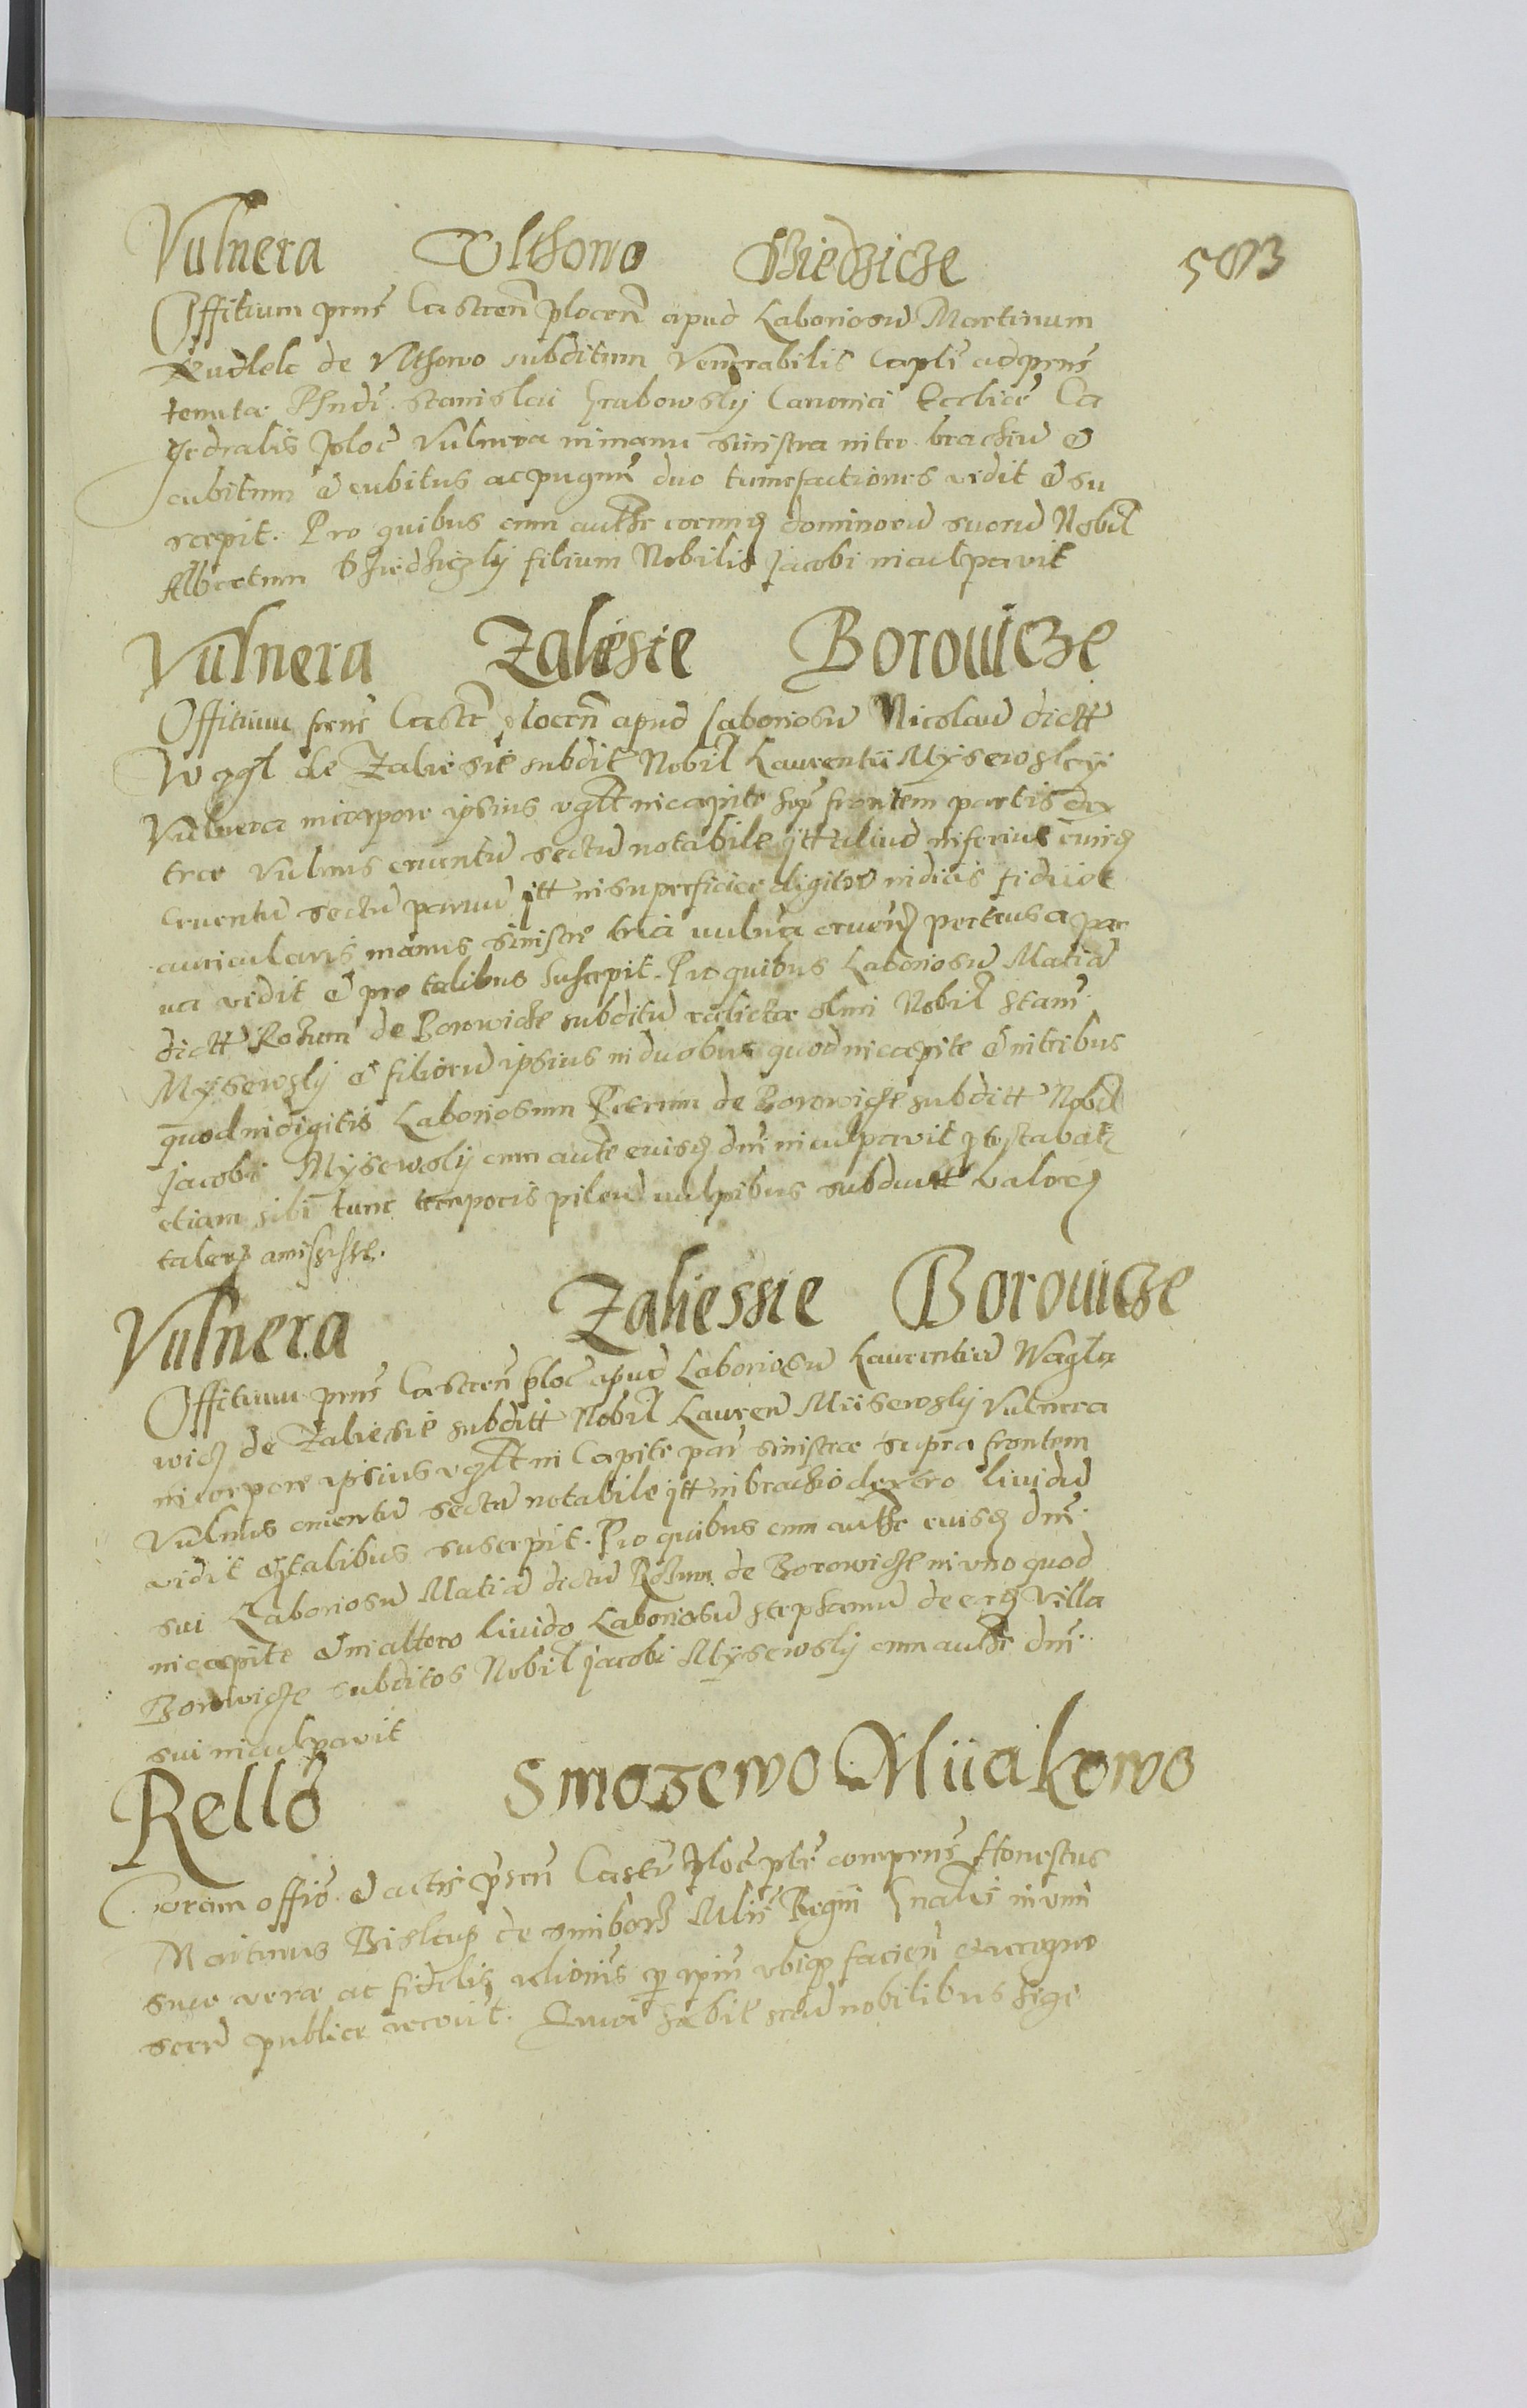 Vulnera Ulthowo Dziedzicze
503
Offitium prns Castren plocen apud Laboriosu Martinum
de Ulthowo subditum Venerabilis Capli ad prns
tenutae Rhndi Stanislai Grabowsky Canonici Ecclie Ca
tedralis ploc Vulnera in manu sinistra inter brachiu et
cubitum et cubitus ac pugnu duo tumefactiones vidit et su
scepit. Pro quibus cum authe dominoru suoru Nobil
Albertum filium Nobilis Jacobi inculpavit
Vulnera Zaliesie Borowicze
Offitium prns Castr plocen apud Laboriosu Nicolau dictt
Wagl de Zaliesie subdit Nobil Laurentii Mysewsky
Vulnera in corpore ipsius vgltt in capite sup frontem partis dex
trae Vulnus cruentu sectu notabile itt aliud inferius
Cruentu sectu parvu itt in superficiae digitor indicis
auricularis manus sinistre tria vulna cruen pertusa par
va vidit et pro talibus suscepit. Pro quibus Laboriosu Matia
dictt Rosum de Borowicze subditu relictae olim Nobil Stani
Mysewsky et filioru ipsius in duobus quod in capite et in tribus
quod in digitis Laboriosum Petrum de Borowicze subditt Nobil
Jacobi Mysewsky cum authe eiusq dni inculpavit
etiam sibi tunc temporis pileu vulpibus subductt valoris
taler amisisse.
Vulnera Zaliessie Borowicze
Offitium prns Castren ploc apud Laboriosu Laurentiu Wagla
wicz de Zaliesie subditt Nobil Lauren Miisewsky Vulnera
in corpore ipsius vgltt in Capite par sinistrae supra frontem
Vulnus cruentu sectu notabile itt in brachio dextro lividu
vidit et talibus suscepit. Pro quibus cum authe eiusq dni
sui Laboriosu Matia dictu Rosum de Borowicze in uno quod
in capite et in altero livido Laboriosu Stephanu de eaq Villa
Borowicze subditos Nobil Jacobi Mysewsky cum authe dni
sui inculpavit
Rello Smoszewo Miiakowo
Coram offio et actis prsen Castr ploc plr comprns Honestus
Martinus Biskup de Mlis Regni Gnalis in vim
suae verae ac fidelis rlionis p ipm ubiq facien et recogno
scen publice recovit. Quia habit secu nobilibus